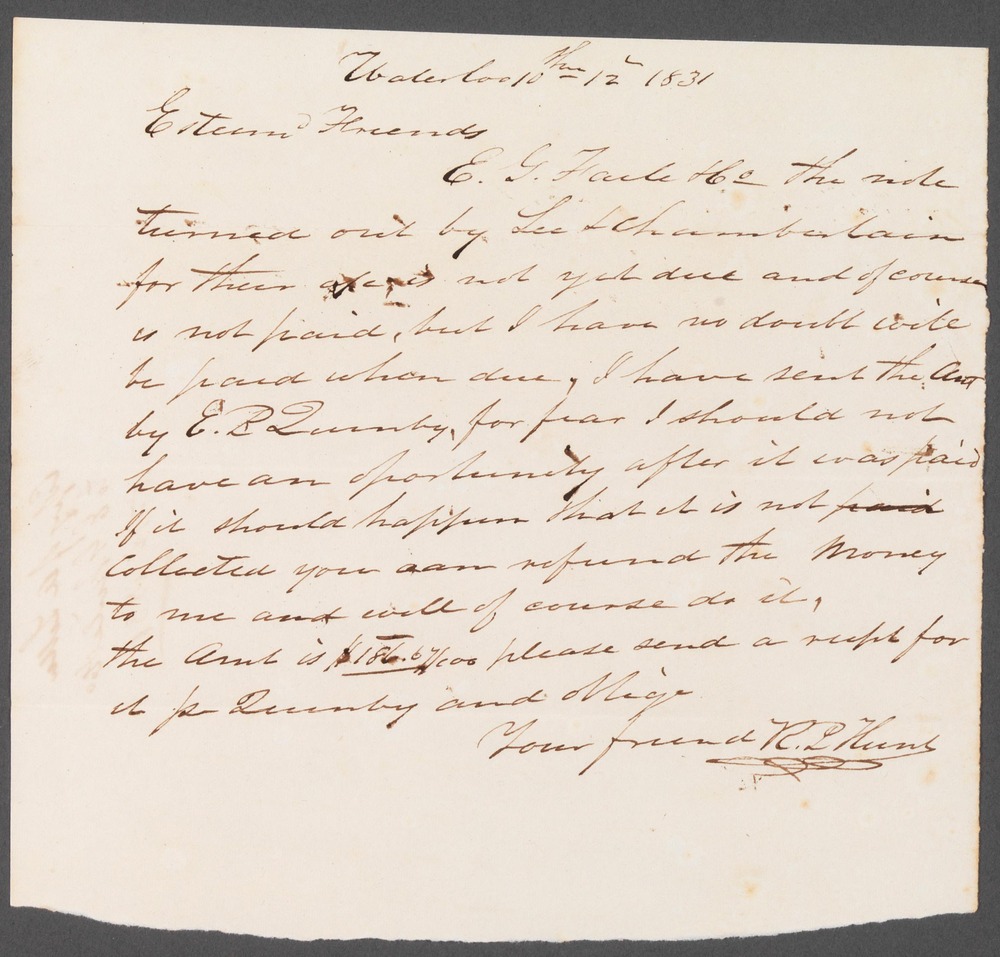 Waterloo 10th mo 12 1831
Esteemd Friends
E. G. Faile & Co the note
turned out by Lee & Chamberlain
for their is not yet due and of course
is not paid, but I have no doubt will
be paid when due, I have sent the Amt
by E. P Quinby, for fear I should not
have an oportunity after it was paid
If it should happen that it is not paid
Collected you can refund the Money
to me and will of course do it,
the Amt is please send a recpt for
it pr Quinby and oblige
Your friend R. P Hunt